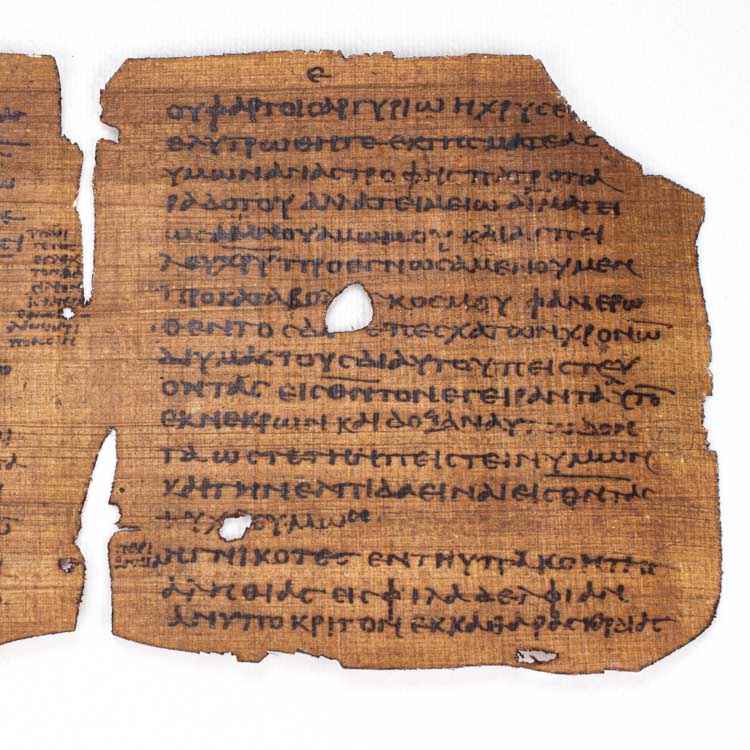 ε
ου φαρτοις αργυριω η χρυσει
ελυτρωθητε εκ της ματεας
υμων αναστροφης πατροπα
ραδοτου αλλα τειμειω αιματει
ως αμνου αμωμου και ασπει
λου χρυ προεγνωσμενου μεν
προ καταβο κοσμου φανερω
θεντος δε επ εσχατων χρονω
δι υμας τους δι αυτου πειστευ
οντας εις θν τον εγειραντα αυτο
εκ νεκρων και δοξαν αυτω δον
τα ωστε την πειστειν υμων
και την ελπιδα ειναι εις θν τας
υμω
ηγνικοτες εν τη υπακοη τη
αληθιας εις φιλαδελφιαν
ανυποκριτον εκ καθαρας κρδιας